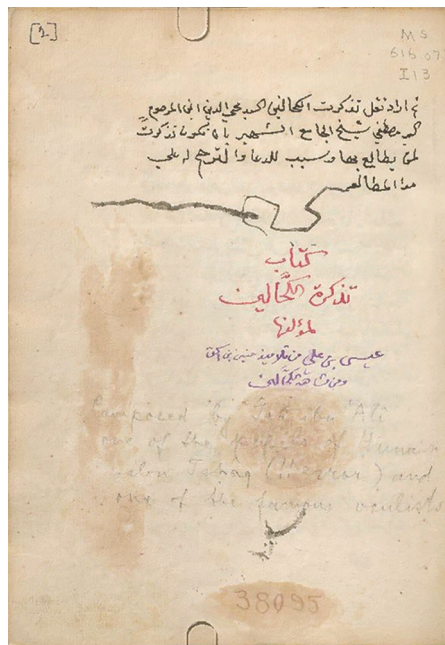 [1]
MS
616.07
I13
ثم اراد نقل تذكرت الكحالين السيد محيي الدين ابن المرحوم
السيد مصطفى شيخ الجامع الشهير بان يكون تذكرتً
لمن يطالع بها وسبب للدعا والترحم له على
مدا المطالعه
كتاب
تذكرة الكحّالين
لمؤلفها
عيسى بن علي من تلاميذ حنين بن اسحق
ومن مشاهير الكحّالين
Composed by Isa ibn 'Ali
one of the pupils of Hunain
ibn Ishaq and
one of the famous oculists
38095